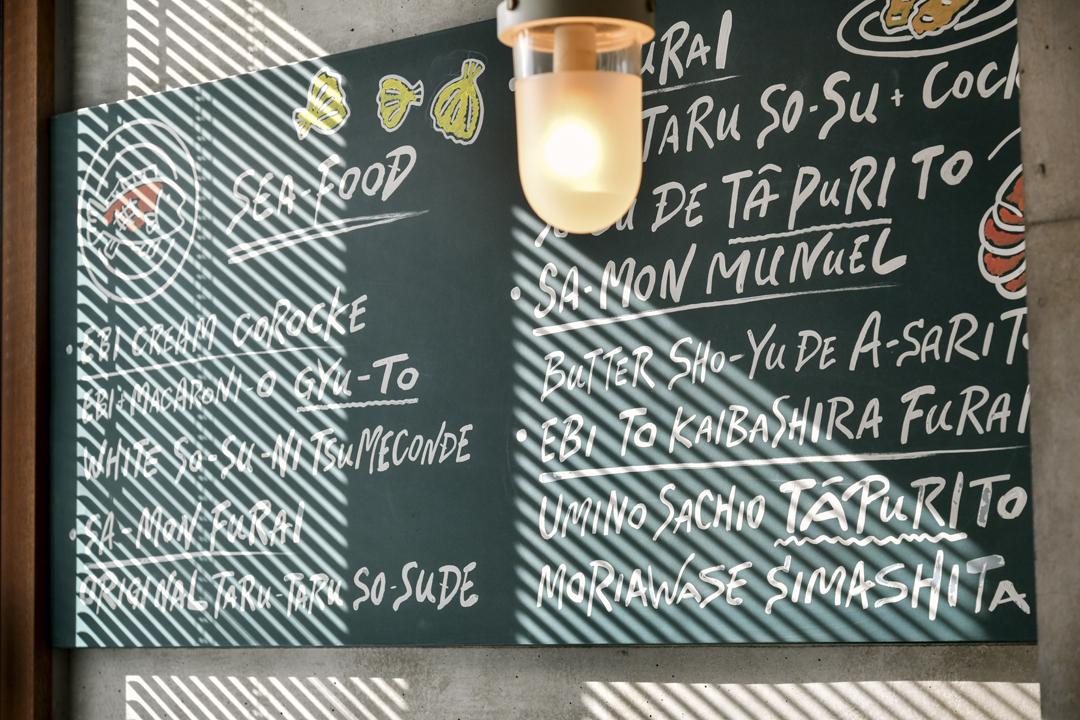 SEA-FOOD
EBI CREAM COROCKE
EBI+MACARONI-O GYU-TO
WHITE SO-SU-NI TSUMECONDE
SA-MON FURAI
ORIGINAL TARU-TARU SO-SUDE
URAI
TARU SO-SU + COCK
DE TÂPURI TO
SA-MON MUNUEL
BUTTER SHO-YU DE A-SARI TO
EBI TO KAIBASHIRA FURAI
UMINO SACHIO TĀPURI TO
MORIAWASE SIMASHITA